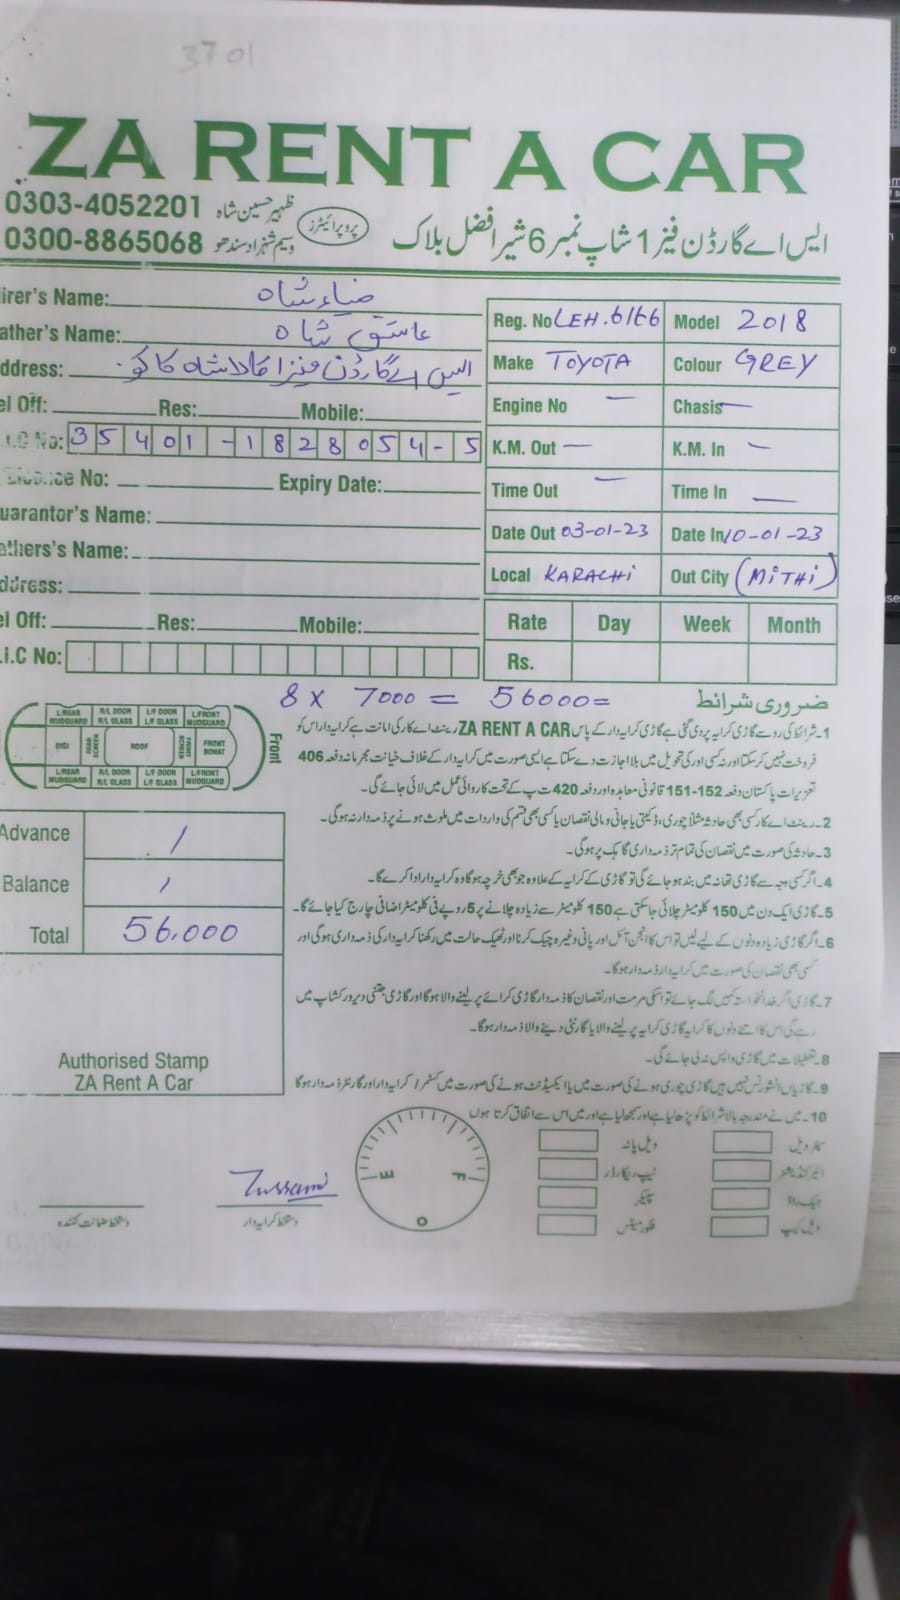 3701
ZA RENT A CAR
0303-4052201 ظہیر حسین شاہ
0300-8865068 وسیم شہزاد سندھو
پروپرائیٹرز
ایس اے گارڈن فیز 1 شاپ نمبر 6 شیر افضل بلاک
irer's Name: ضیاء شاہ
ather's Name: عاشق شاہ
ddress: ایس اے گارڈن فیز 1 کالا شاہ کاکو.
el Off: Res: Mobile:
.I.C No: 35401-1828054-5
Licence No: Expiry Date:
uarantor's Name:
athers's Name:
ddress:
el Off: Res: Mobile:
.i.C No:
Reg. No LEH.6166 Model 2018
Make TOYOTA Colour GREY
Engine No — Chasis —
K.M. Out — K.M. In —
Time Out — Time In —
Date Out 03-01-23 Date In 10-01-23
Local KARACHI Out City (MITHI)
Rate Day Week Month
Rs.
8 x 7000 = 56000=
ضروری شرائط
L/REAR MUDGUARD R/L DOOR R/L GLASS L/F DOOR L/F GLASS L/FRONT MUDGUARD
DIGI ROOF FRONT SCREEN FRONT BONAT
L/REAR MUDGUARD R/L DOOR R/L GLASS L/F DOOR L/F GLASS L/FRONT MUDGUARD
Front
1۔شرائط کی رو سے گاڑی کرایہ پر دی گئی ہے گاڑی کرایہ دار کے پاس ZA RENT A CAR رینٹ اے کار کی امانت ہے کرایہ دار اس کو
فروخت نہیں کر سکتا اور نہ کسی اور کی تحویل میں بلا اجازت دے سکتا ہے ایسی صورت میں کرایہ دار کے خلاف خیانت مجرمانہ دفعہ 406
تعزیرات پاکستان دفعہ 152-151 قانونی معاہدہ اور دفعہ 420 ت پ کے تحت کاروائی عمل میں لائی جائے گی۔
2۔رینٹ اے کار کسی بھی حادثہ مثلاً چوری، ڈکیتی یا جانی و مالی نقصان یا کسی بھی قسم کی واردات میں ملوث ہونے پر ذمہ دار نہ ہوگی۔
3۔حادثہ کی صورت میں نقصان کی تمام تر ذمہ داری گاہک پر ہوگی۔
4۔اگر کسی وجہ سے گاڑی تھانہ میں بند ہو جائے گی تو گاڑی کے کرایہ کے علاوہ جو بھی خرچہ ہوگا وہ کرایہ دار ادا کرے گا۔
5۔گاڑی ایک دن میں 150 کلومیٹر چلائی جا سکتی ہے 150 کلومیٹر سے زیادہ چلانے پر 5 روپے فی کلومیٹر اضافی چارج کیا جائے گا۔
6۔اگر گاڑی زیادہ دنوں کے لیے لیں تو اس کا انجن آئل اور پانی وغیرہ چیک کرنا اور ٹھیک حالت میں رکھنا کرایہ دار کی ذمہ داری ہوگی اور
کسی بھی نقصان کی صورت میں کرایہ دار ذمہ دار ہوگا۔
7۔گاڑی اگر خدانخواستہ کہیں لگ جائے تو اسکی مرمت اور نقصان کا ذمہ دار گاڑی کرائے پر لینے والا ہوگا اور گاڑی جتنی دیر ورکشاپ میں
رہے گی اس کا اتنے دنوں کا کرایہ گاڑی کرایہ پر لینے والا یا گارنٹی دینے والا ذمہ دار ہوگا۔
8۔تعطیلات میں گاڑی واپس نہ لی جائے گی۔
9۔گاڑیاں انشورنس نہیں ہیں گاڑی چوری ہونے کی صورت میں یا ایکسیڈنٹ ہونے کی صورت میں کسٹمر / کرایہ دار اور گارنٹر ذمہ دار ہوگا
10۔میں نے مندرجہ بالا شرائط کو پڑھ لیا ہے اور سمجھ لیا ہے اور میں اس سے اتفاق کرتا ہوں
Advance /
Balance /
Total 56,000
Authorised Stamp
ZA Rent A Car
E F O
سٹپر ویل ویل پانہ
ائیر کنڈیشنر ٹیپ ریکارڈر
جیک راڈ سپیکر
ویل کیپ فلور میٹس
دستخط کرایہ دار
دستخط ضمانت کنندہ